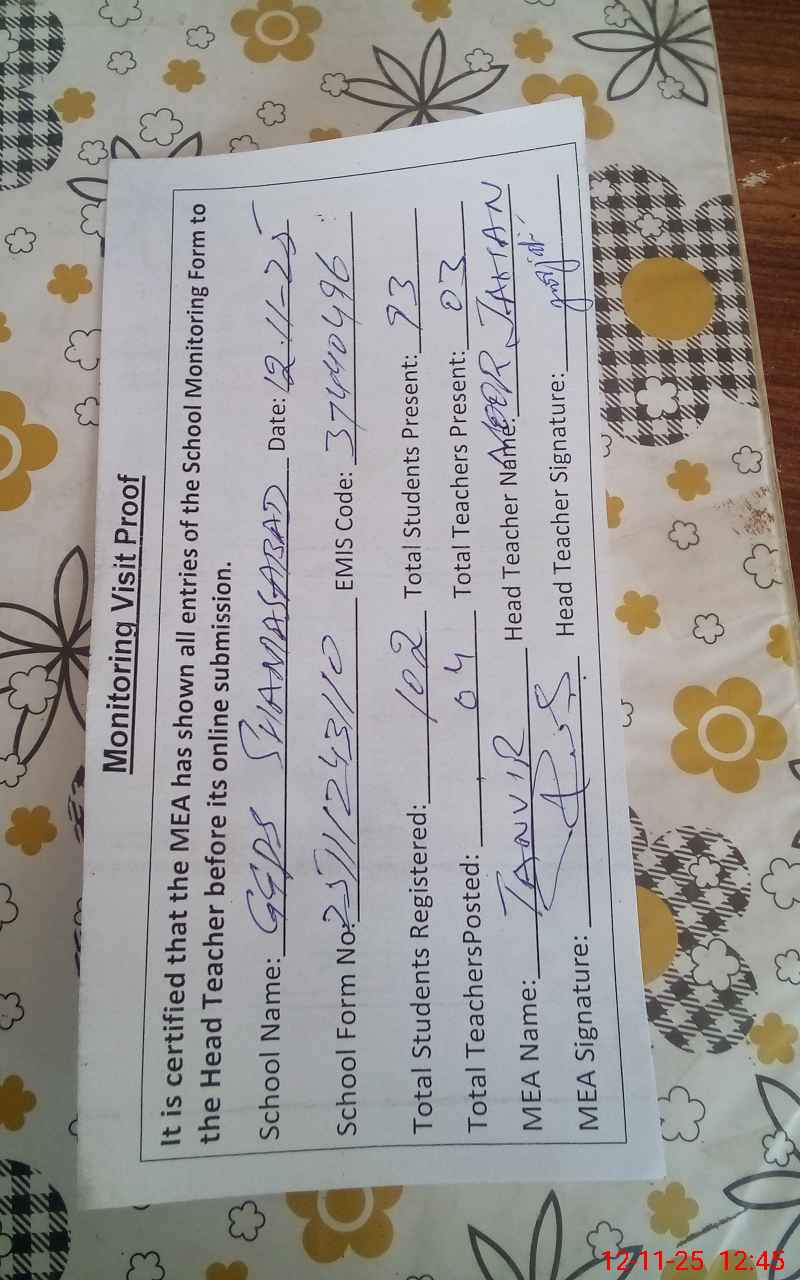 Monitoring Visit Proof
It is certified that the MEA has shown all entries of the School Monitoring Form to
the Head Teacher before its online submission.
School Name: GGPS SHAMASABAD Date: 12-11-25
School Form No: 25111243110 EMIS Code: 37440496
Total Students Registered: 102 Total Students Present: 93
Total TeachersPosted: 04 Total Teachers Present: 03
MEA Name: TANVIR Head Teacher Name: NOOR JAHAN
MEA Signature: Head Teacher Signature:
12-11-25 12:45